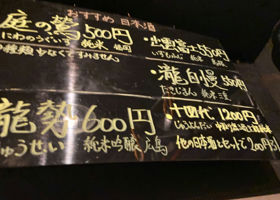 おすすめ 日本酒
庭の鶯 500円
にわのうぐいす 純米 福岡
種類少なくてすみません
・出雲富士 550円
いずもふじ 純米
・瀧自慢 550円
たきじまん 純米 三重
龍勢 600円
りゅうせい 純米吟醸 広島
・十四代 1200円
じゅうよんだい
他の日本酒とセットで200円引